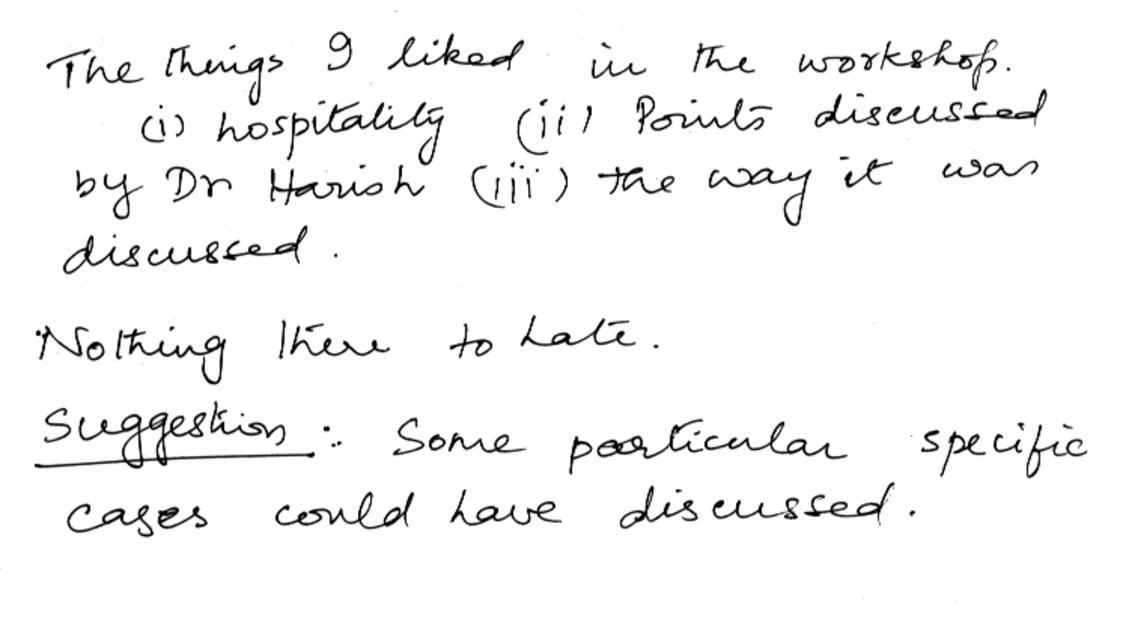 The things I liked in the workshop.
(i) hospitality (ii) Points discussed
by Dr Harish (iii) the way it was
discussed.
Nothing there to hate.
Suggestion : Some particular specific
cases could have discussed.